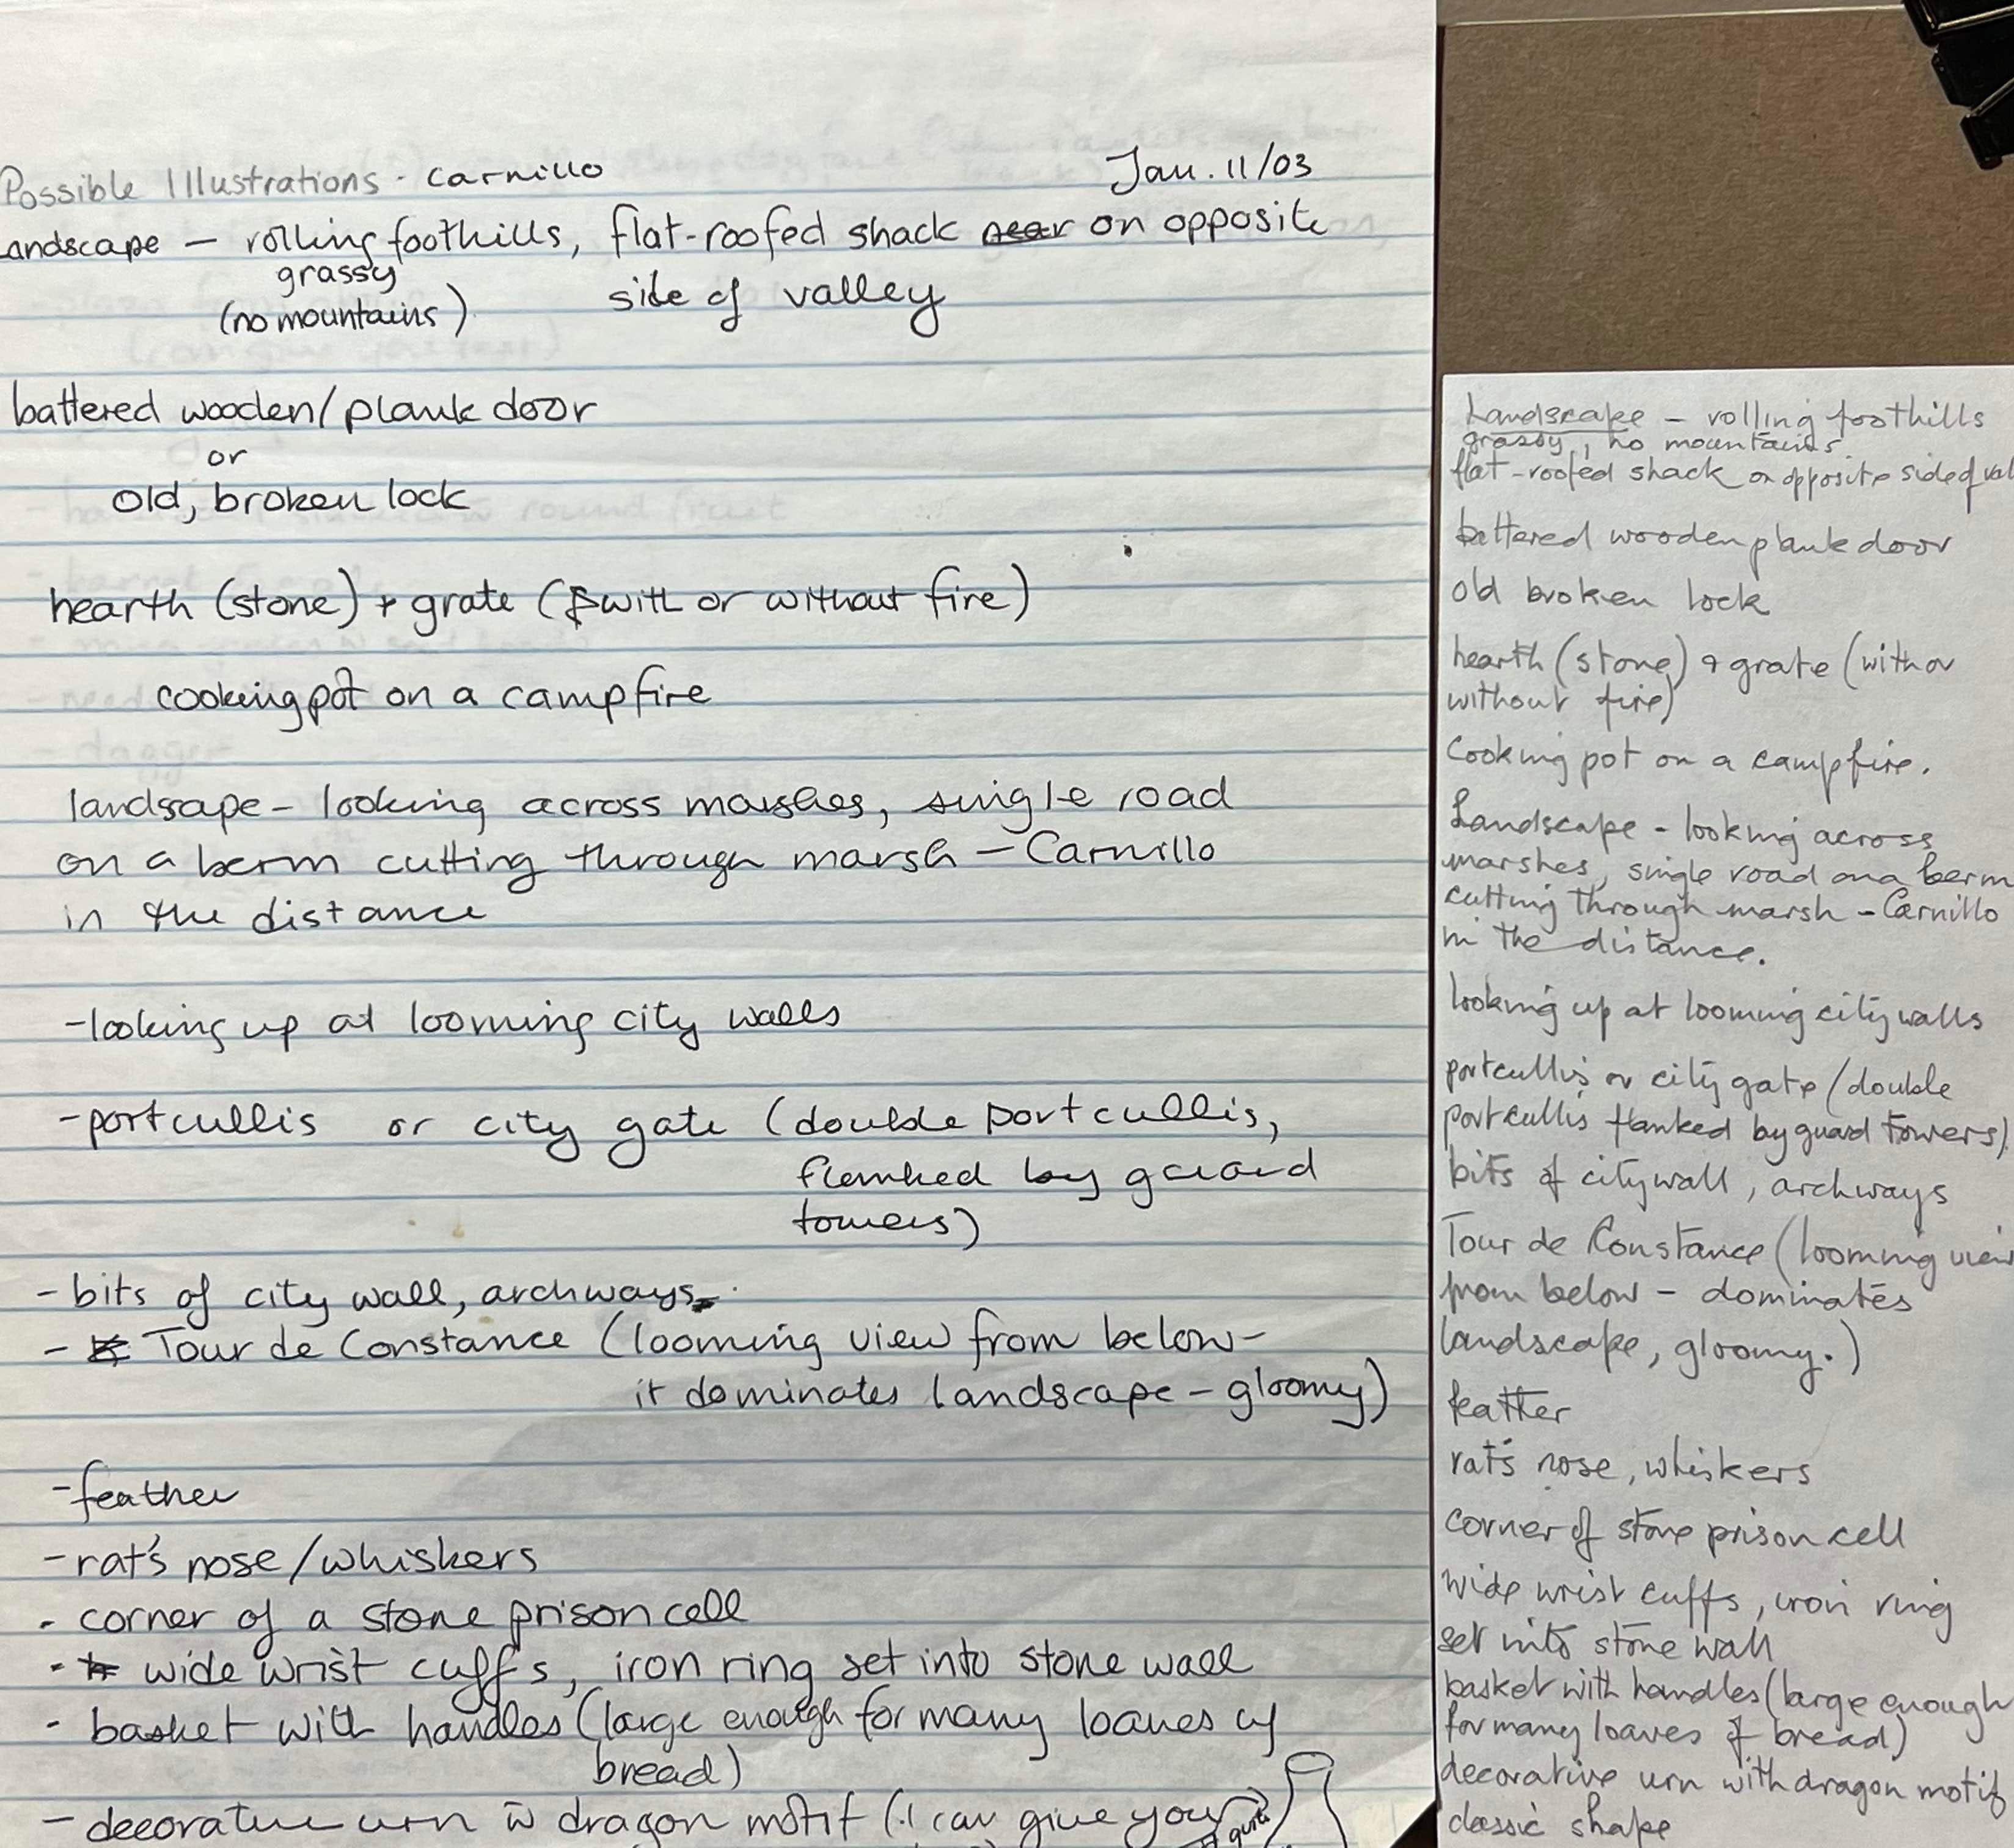 Possible Illustrations - Carnillo
Jan. 11/03
Landscape — rolling foothills, flat-roofed shack near on opposite
grassy
(no mountains)
side of valley
battered wooden/plank door
or
old, broken lock
hearth (stone) + grate (with or without fire)
cooking pot on a campfire
landscape - looking across marshes, single road
on a berm cutting through marsh - Carnillo
in the distance
- looking up at looming city walls
- portcullis or city gate (double portcullis,
flanked by guard
towers)
- bits of city wall, archways
- Tour de Constance (looming view from below -
it dominates landscape - gloomy)
- feather
- rat's nose/whiskers
- corner of a stone prison cell
- wide wrist cuffs, iron ring set into stone wall
- basket with handles (large enough for many loaves of
bread)
- decorative urn w dragon motif (I can give you
Landscape - rolling foothills
grassy, no mountains
flat-roofed shack on opposite side of val
battered wooden plank door
old broken lock
hearth (stone) + grate (with or
without fire)
Cooking pot on a campfire.
Landscape - looking across
marshes, single road on a berm
cutting through marsh - Carnillo
in the distance.
looking up at looming city walls
portcullis or city gate (double
portcullis flanked by guard towers)
bits of city wall, archways
Tour de Constance (looming view
from below - dominates
landscape, gloomy.)
feather
rat's nose, whiskers
corner of stone prison cell
wide wrist cuffs, iron ring
set into stone wall
basket with handles (large enough
for many loaves of bread)
decorative urn with dragon motif
classic shape